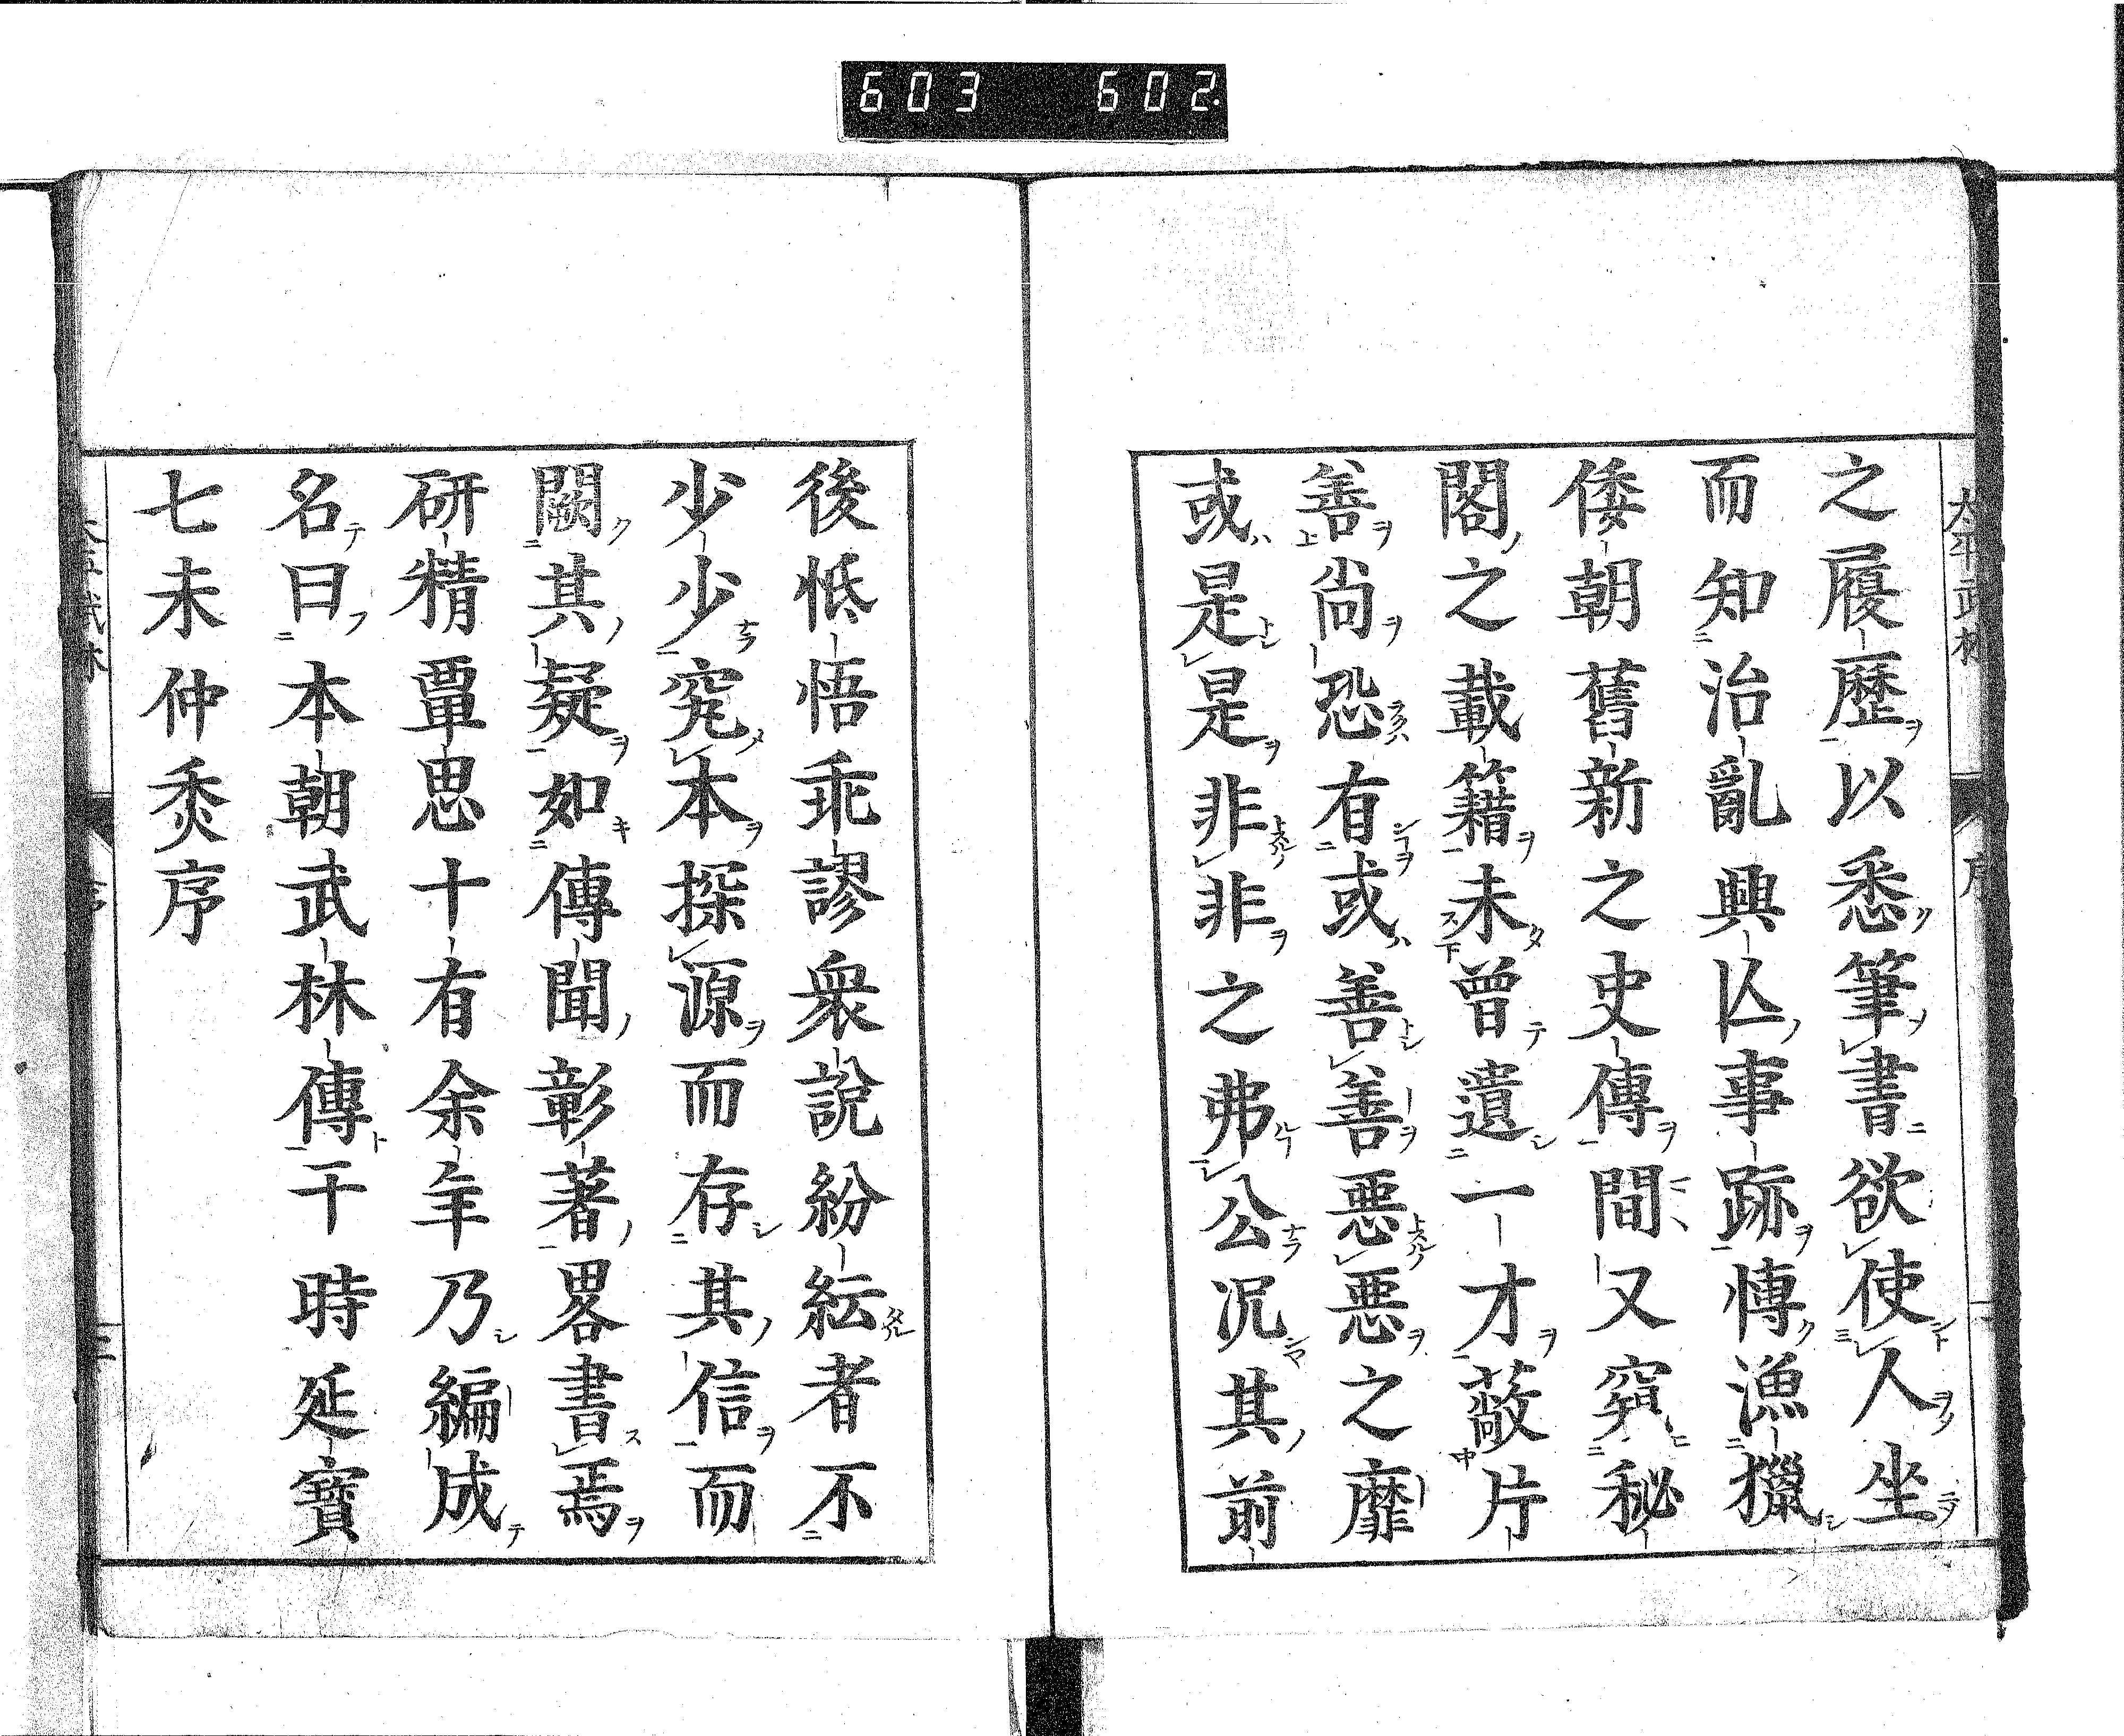 603 602
之履歴以悉筆書欲使人坐
而知治亂興亾事跡愽漁獵
倭朝舊新之史傳間又窮秘
閣之載籍未曾遺一才蔵片
善尚恐有或善善惡惡之靡
或是是非非之弗公况其前
後怟悟乖謬衆說紛紜者不
少少究本探源而存其信而
闕其疑如傳聞彰著畧書焉
研精覃思十有余年乃編成
名曰本朝武林傳干時延寶
七未仲秌序